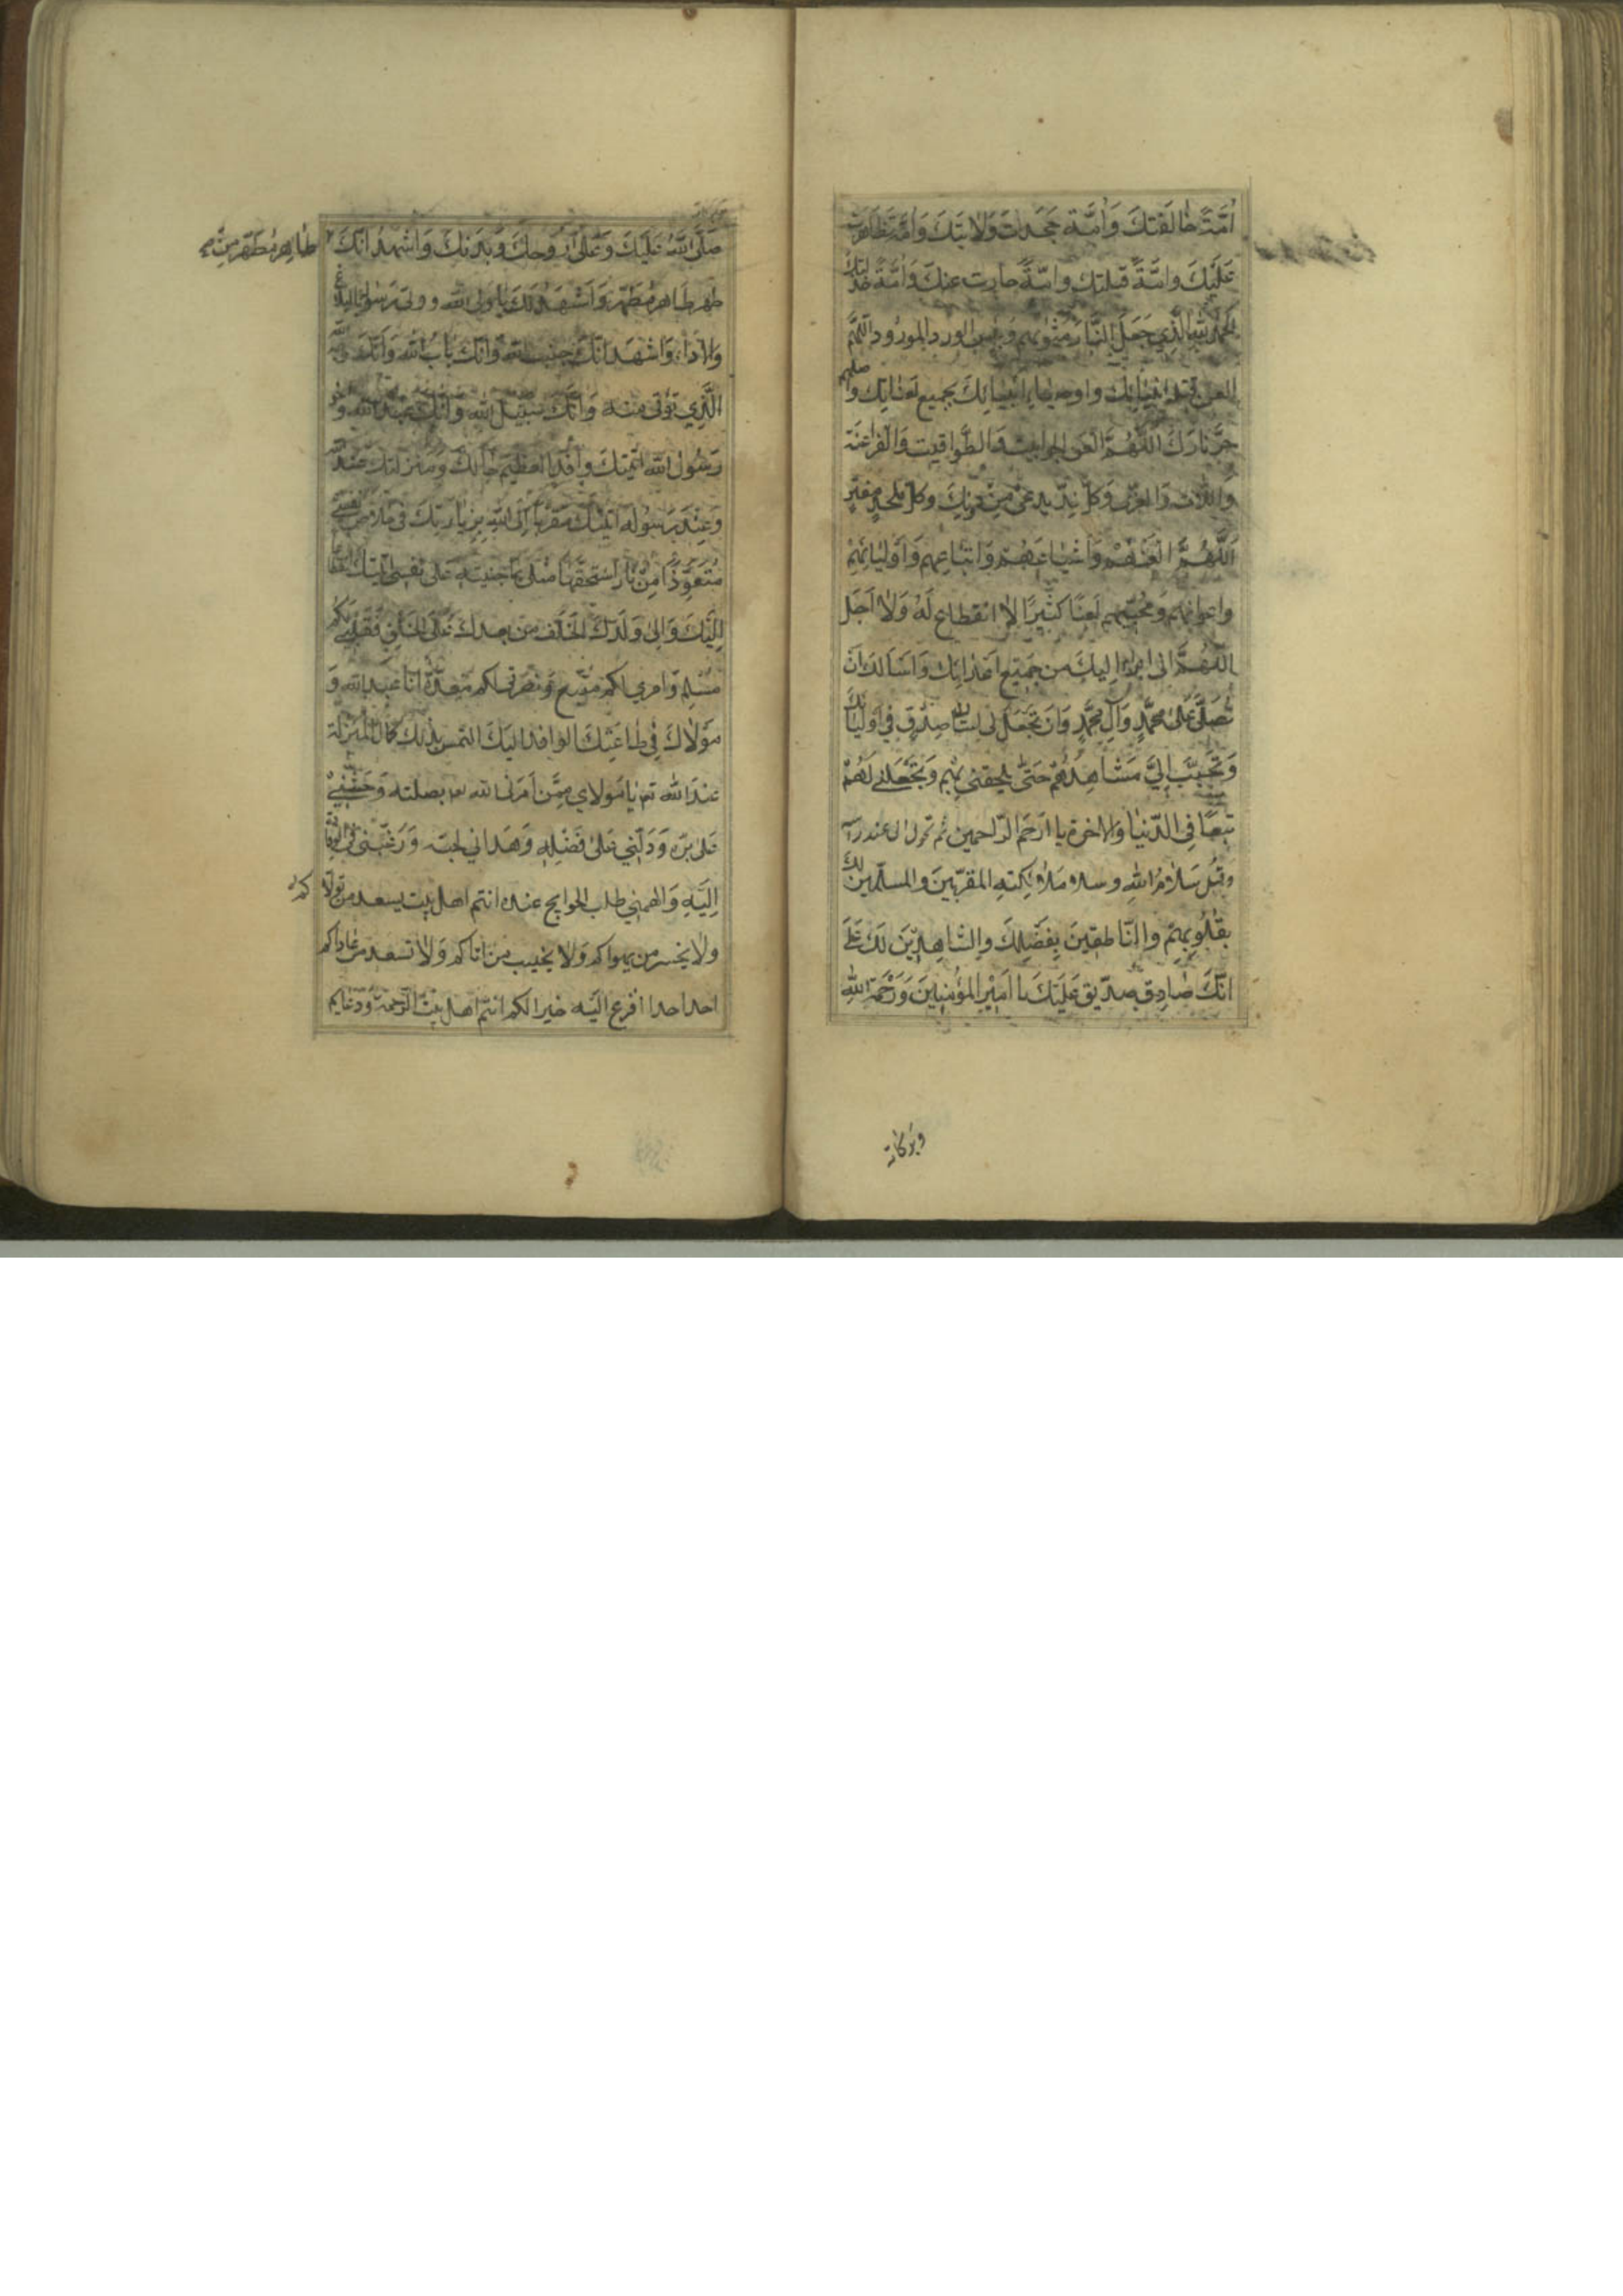 اُمَّةً خالَفَتكَ وَاُمَّةً جَحَدَت وَلايَتَكَ وَاُمَّةً تَظاهَرَت
عَلَيكَ وامَّةً قتلتك وامّةً حادت عنكَ وَاُمَّةً خذلتك
اَلحَمدُ للهِ الَّذي جَعَلَ النّارَ مَثويهم وَبئس الورد المورود اَللّهمَّ
العن قتلة انبيائك واوصياء انبيائكَ بجميع لعناتك و اصلهم
حرّ نارك اللّهُمَّ العن الجوابيت وَالطَّواغيت وَالفَراعنة
وَاللات وَالعزى وَكلّ نِدّ يدعى من دونكَ وكلّ ملحدٍ مفترٍ
اَللّهُمَّ العَنهُم وَاَشياعَهُم وَاتباعهم وَاَوليائهم
واعوانهم وَمُحِبّيهم لَعنًا كثيرًا لا انقطاع لَهُ وَلا اَجَل
اللّهُمَّ انى ابرا اليكَ من جَميع اعدائك وَاَسالك ان
تُصَلّى عَلى محمّدٍ وَآلِ محمّدٍ وَان تجعَل لى لسان صِدقٍ في اوليائك
وَتُحَبِّبَ اِليَّ مَشاهِدَهُم حَتّى تلحقنى بهم وَتجعَلنى لَهُم
تبعًا فى الدّنيا وَالاخرة يا ارحَم الرّاحمين ثم تحول الى عند راسه
وقُل سَلامُ اللهِ وسلام مَلائِكتهِ المقرّبينَ والمسلّمين لك
بقُلُوبِهِم والنّاطقينَ بِفَضلِكَ والشّاهِدينَ لَك عَلى
انّكَ صادِق صدّيق عَلَيكَ يا اَميرَ المؤمنينَ وَرَحمَة اللهِ
وبركاته
صَلَّى اللهُ عَلَيكَ وَعَلى رُوحِكَ وَبَدَنِكَ وَاَشهدُ انّكَ
طاهِرٌ مُطَهَّر مِن
طهر طاهر مطهّر وَاَشهَدُ لَكَ يا ولى الله وولىّ رَسوله بالبلاغ
وَالاداء وَاشهَد انّكَ جنب الله وَانّكَ بابُ الله وَانّكَ وجه الله
الَّذي يؤتى منه وَانّك سَبيل الله وَانّكَ عبد الله وَاخو
رَسُول الله اتيتكَ وافدا لعظيم حالك ومنزلتك عند الله
وَعِندَ رَسُوله اتيتك متقربا اِلى اللهِ بزيارتك فى خلاص نفسى
مُتَعَوّذًا مِن نارٍ استحقّها مثلى بما جنيت على نفسى اتيتك انقطاعا
اِلَيكَ وَالى وَلَدكَ الخلف من بعدك عَلى الحق فقلبى لكم
مُسلِم وَامري لكم متّبع وَنصرتى لكم معدّة انا عبد الله وَ
مَولاكَ في طاعَتِكَ الوافد اليكَ التمس بذلك كمال المنزلة
عندَ الله تعـ يا مَولاي مِمَّن اَمَرَنى الله تعـ بصلته وَحَثَّني
عَلى بِرّه وَدَلّني عَلى فَضلِه وَهَداني لحبّه وَرَغَّبَني فى الوفادة
اِلَيهِ وَالهمني طلب الحوائج عنده انتم اهل بيت يسعد من تولا
كم
ولا يخسر من يهواكم وَلا يخيب من اتاكم وَلا تسعد من عاداكم
احدا افزع اليَه خيرا لكم انتم اهل بيت الرّحمة وَدَعايم